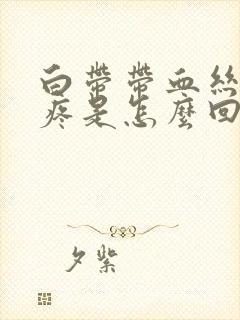 白帶帶血絲
疼是怎麼回
夕紫